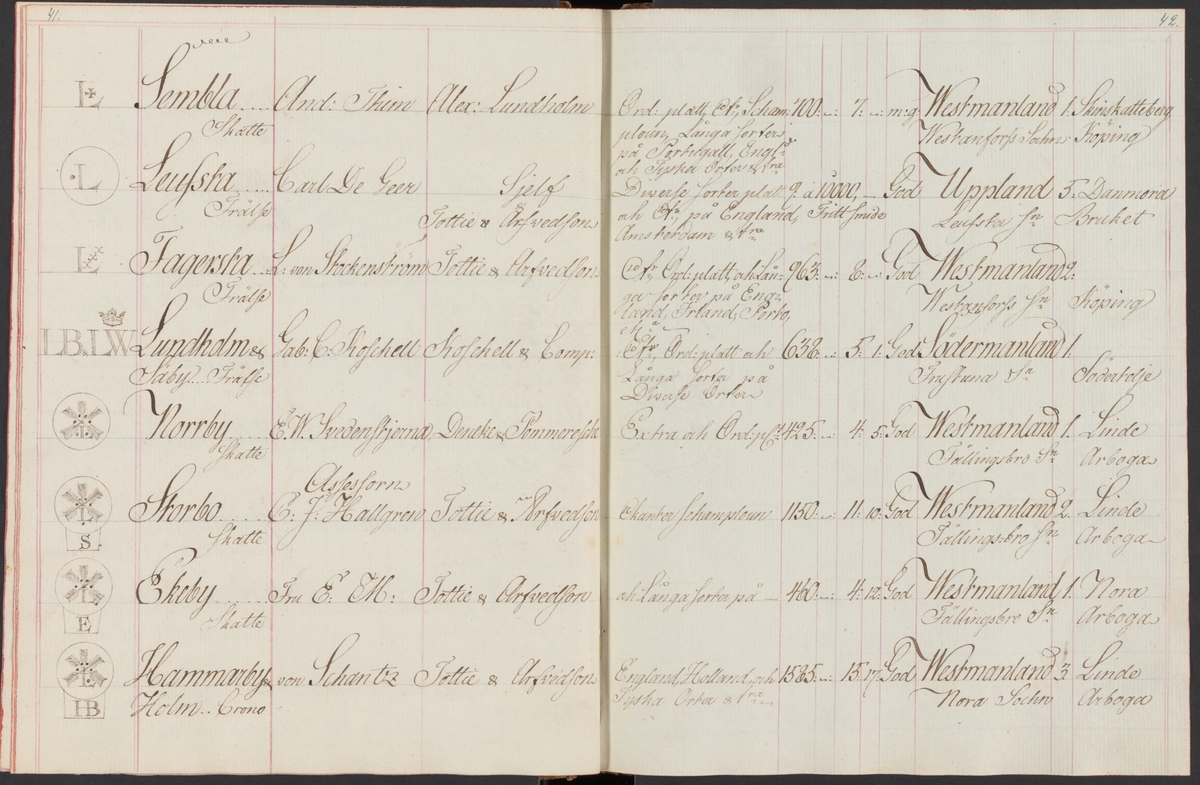 41. 42.
L Sembla.... And: Thim Alex: Lundholm Ord: platt, Scham: 400:—: 7:—: m:g Westmanland 1. Skinskatteberg
Skatte ploun, Långa sorter Westanforss Sochn Köping
på Portugall, Engl:d
och Tyska Orter
L Leufsta.... Carl De Geer Sjelf Diverse sorter platt 9. à 10000, — God Uppland 5. Danmora
Frälse Tottie & Arfvedson och på England, Fritt smide Leufsta Sn Bruket
Amsterdam
L Fagersta.. L: von Stockenström Tottie & Arfvedson Ord: platt, och Lån: 963:—: 8:—: God Westmanland 2:
Frälse ga sorter på Eng: Westanforss Sn Köping
land, Irland, Porto,
I.B.LW Lundholm & Gab: C: Koschell Koschell & Comp: Ord: platt och 638:—: 5. 1. God Södermanland 1.
Säby.. Frälse Långa sorter på Sn Södertelje
Diverse Orter
L Norrby E. W. Svedenstjerna Deneke & Extra och Ord: 425:—: 4: 5: God Westmanland 1. Linde
Skatte Fällingsbro Sn Arboga
Assessorn
Storbo..... C: J: Hallgren Tottie & Arfvedson Okantor schamploun 1150:—: 11: 10: God Westmanland 2. Linde
S Skatte Fällingsbro Sn Arboga
Ekeby...... Fru E: M: Tottie & Arfvedson och Långa sorter på — 460:—: 4: 12: God Westmanland 1. Nora
E Skatte Fällingsbro Sn Arboga
L Hammarby & von Schantz Tottie & Arfvedson England, Holland, och 1585:—: 15: 17: God Westmanland 3 Linde
IB Holm.. Crono Tyska Orter Nora Sochn Arboga